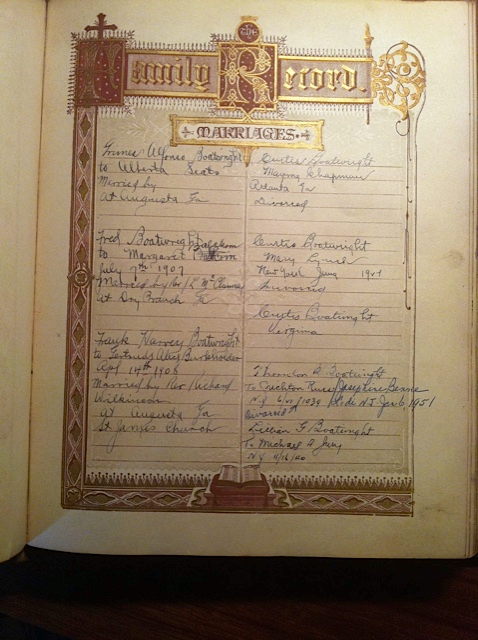 The
Family Record.
MARRIAGES.
Grimes Alfonso Boatwright
to Alberta Seats
Married by
at Augusta Ga
Fred Boatwright
to Margaret
July 7th 1907
Married by Rev
at Dry Branch Ga
Frank Harvey Boatwright
to Gertrude Alice
Apl 14th 1906
Married by Rev Richard
Wilkinson
at Augusta Ga
St James Church
Curtis Boatwright
Mayme Chapman
Atlanta Ga
Divorced
Curtis Boatwright
Mary Lynch
New York June 1921
Divorced
Curtis Boatwright
Virginia
Thornton A Boatwright
To Josephine
N.J. 1934 N.J. Jan 6, 1951
Divorced
Lillian G Boatwright
To Michael A
N.Y. 11/16/40